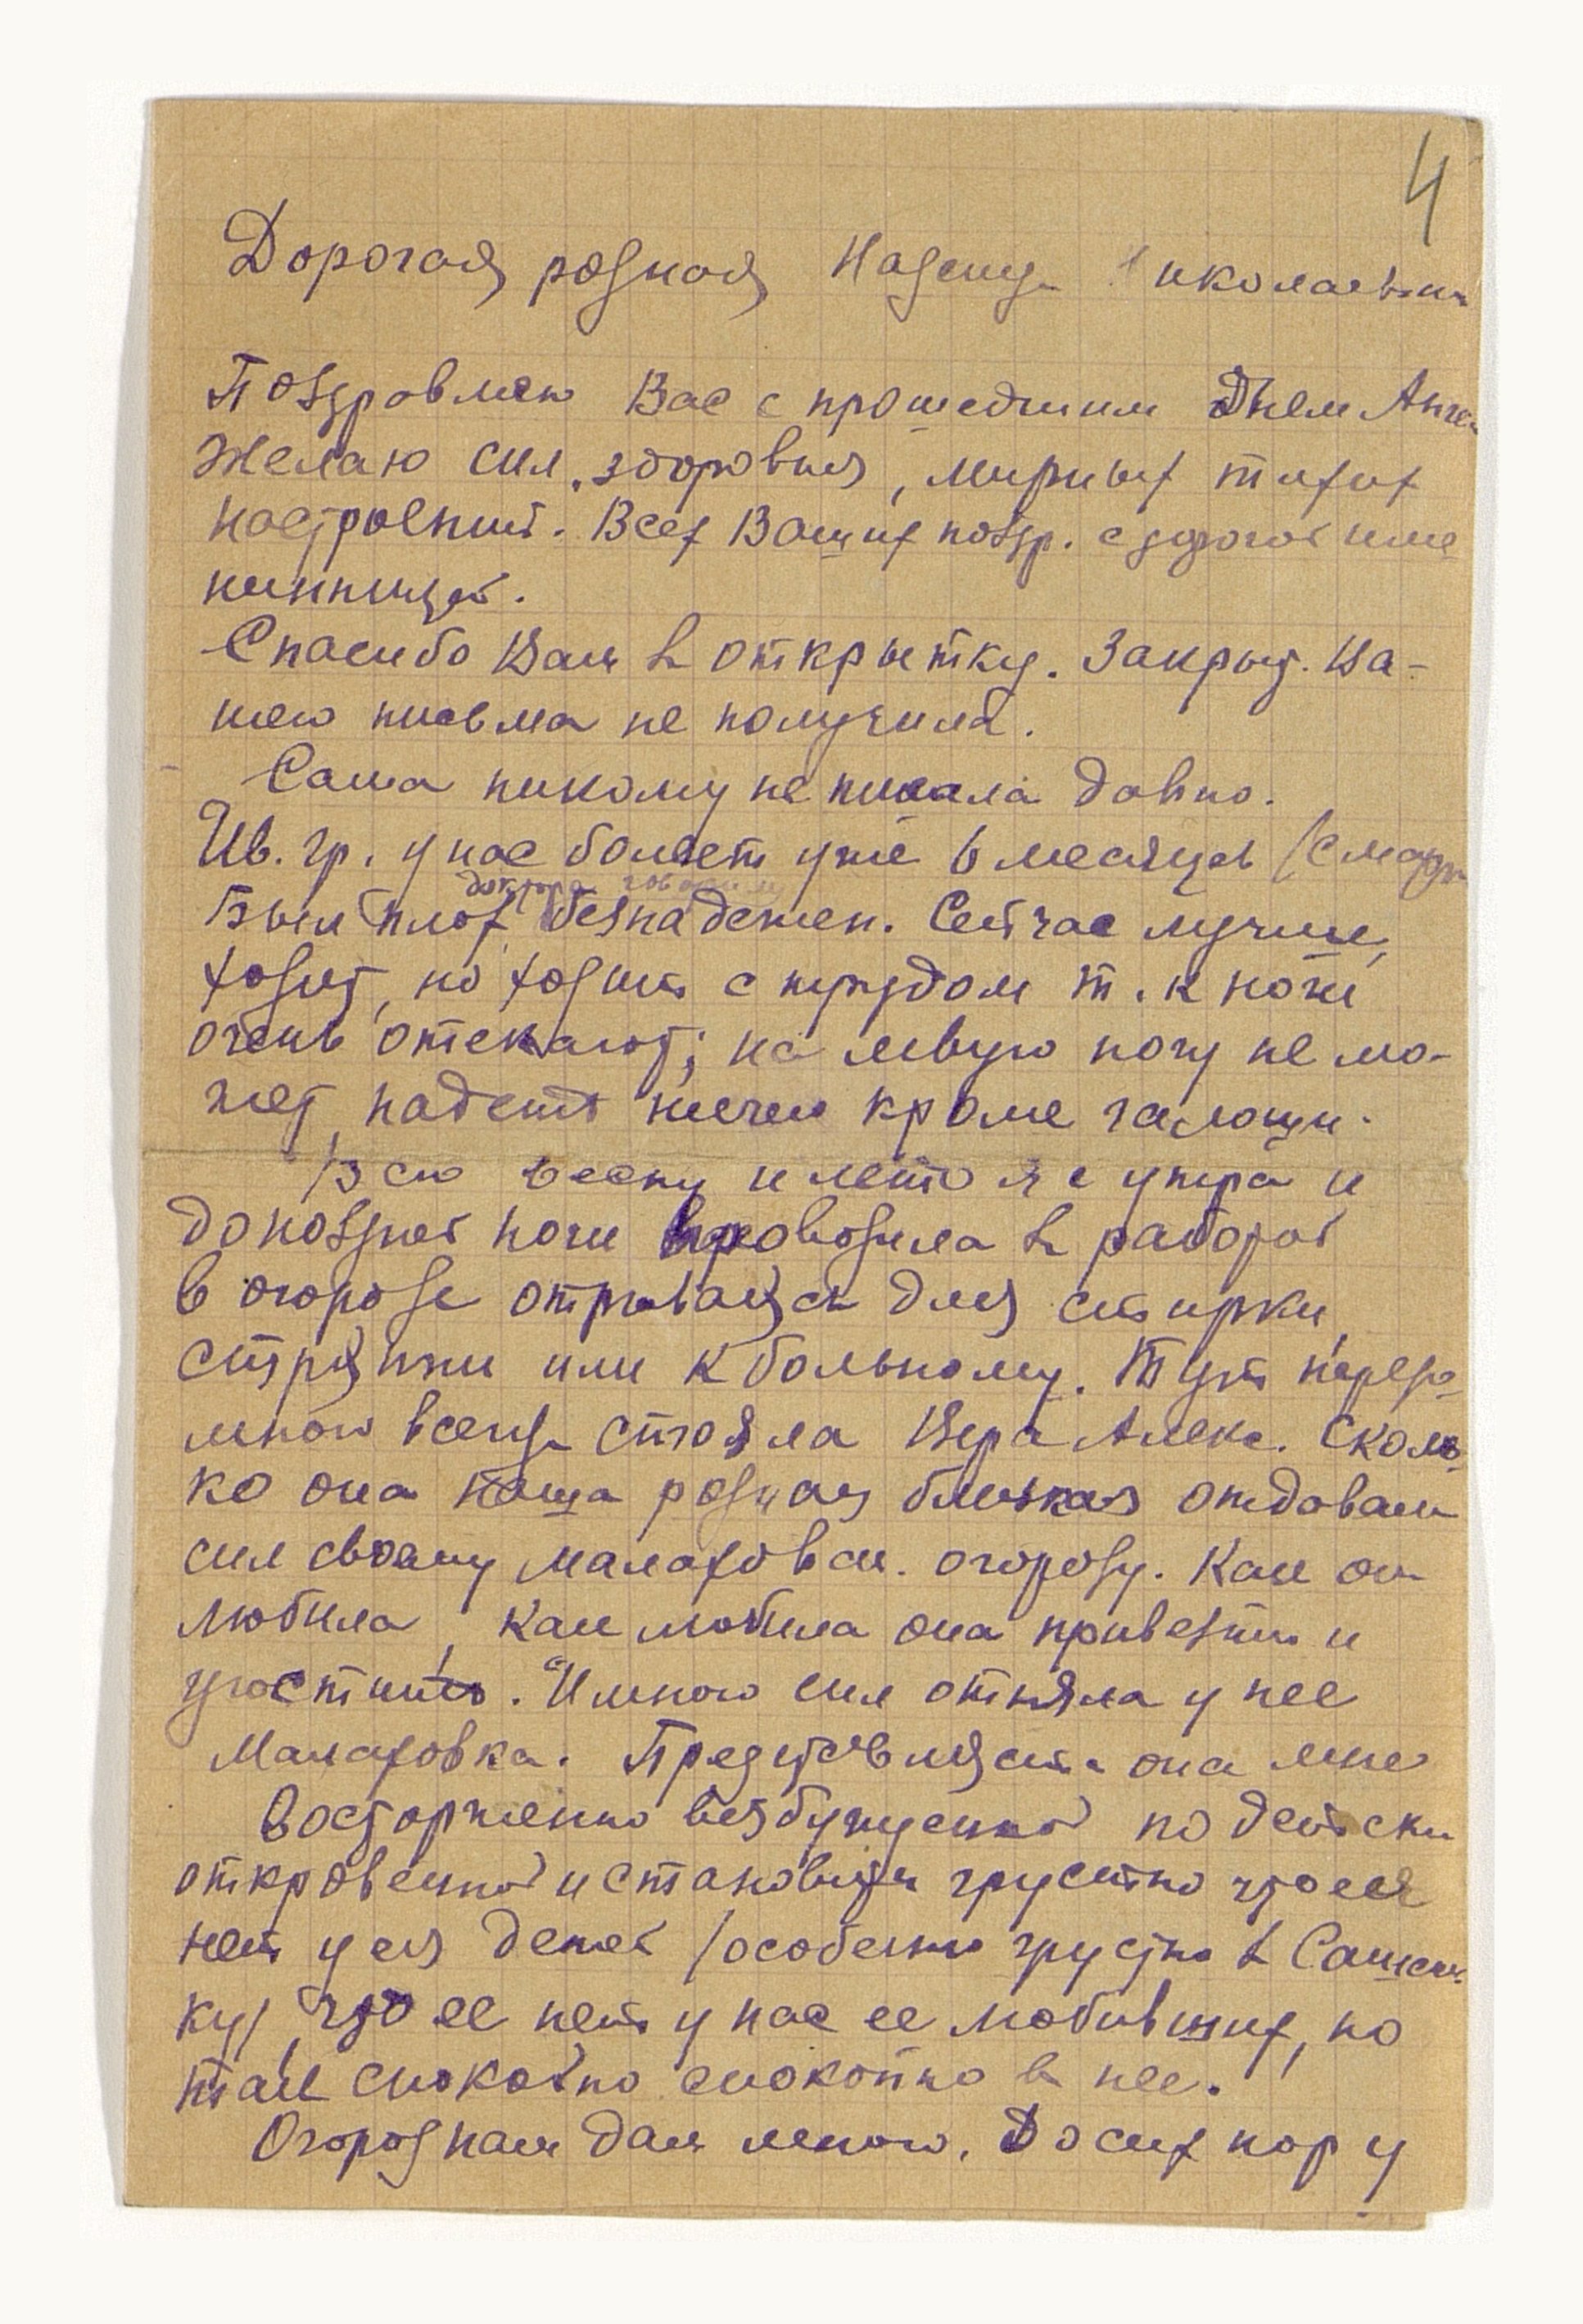 4
Дорогая родная Надежда Николаевна
Поздравляю Вас с прошедшим Днем Ангела
Желаю сил, здоровия, мирных тихих
настроений. Всех Ваших поздр. с дорогой име
нинницей.
Спасибо Вам за открытку. Закрыт. Ва-
шего письма не получила.
Саша никому не писала давно.
Ив. Гр. у нас болеет уже 6 месяцев /с марта
доктора говорили
Был плох, безнадежен. Сейчас лучше,
ходит, но ходит с трудом т. к ноги
очень отекают; на левую ногу не мо-
жет надеть ничего кроме галоши.
Всю весну и лето я с утра и
до поздней ночи проводила в работой
в огороде отрываясь для стирки,
стряпни или к больному. Тут передо
мною всегда стояла Вера Алекс. Сколь-
ко она наша родная близкая отдавала
сил своему малаховск. огороду. Как она
любила, как любила она привезти и
угостить. И много сил отняла у нее
Малаховка. Представляется она мне
восторженно возбужденной по детски
откровенной и становится грустно что ея
нет у ея детей /особенно грустно за Сашень-
ку/, что ее нет у нас ее любивших, но
так спокойно спокойно за нее.
Огород нам дал много. До сих пор у